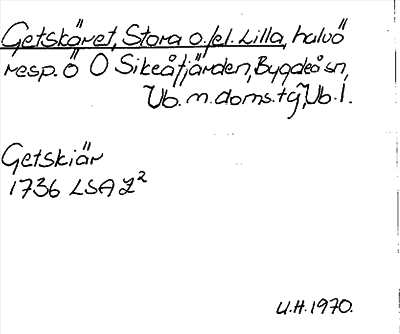 Getskäret, Stora o./el. Lilla, halvö
resp. ö Ö Sikeåfjärden, Bygdeå sn,
Vb. n. doms. tg, Vb. l.
Getskiär
1736 LSA Z²
U.H. 1970.